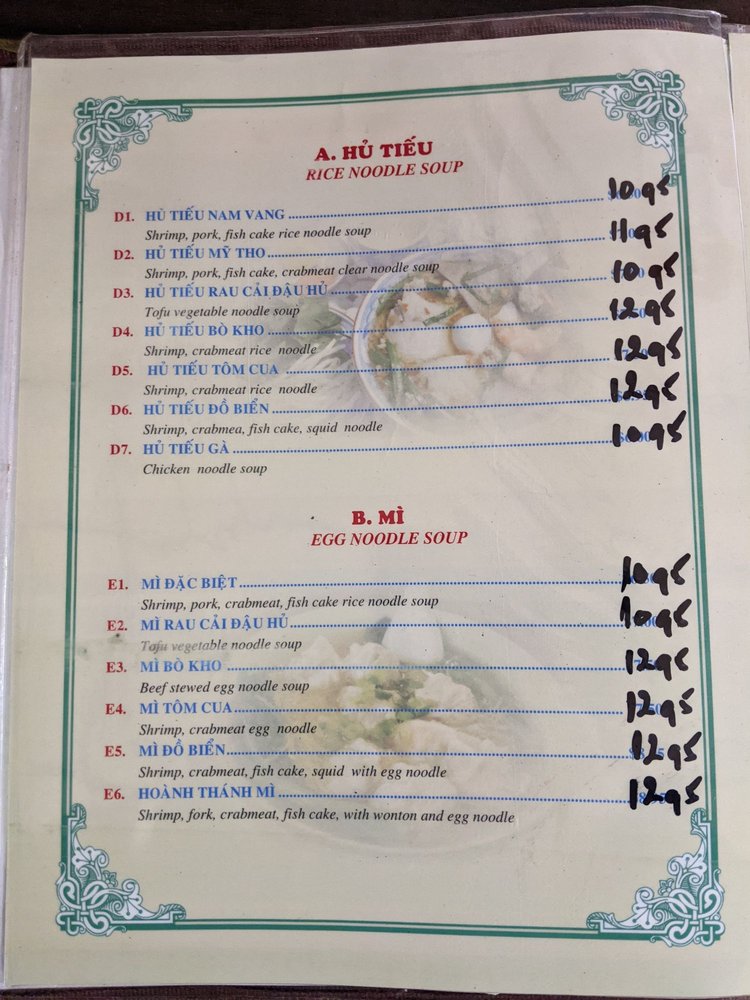 A. HỦ TIẾU
RICE NOODLE SOUP
D1. HỦ TIẾU NAM VANG 10.95
Shrimp, pork, fish cake rice noodle soup
D2. HỦ TIẾU MỸ THO 11.95
Shrimp, pork, fish cake, crabmeat clear noodle soup
D3. HỦ TIẾU RAU CẢI ĐẬU HỦ 10.95
Tofu vegetable noodle soup
D4. HỦ TIẾU BÒ KHO 12.95
Shrimp, crabmeat rice noodle
D5. HỦ TIẾU TÔM CUA 12.95
Shrimp, crabmeat rice noodle
D6. HỦ TIẾU ĐỒ BIỂN 12.95
Shrimp, crabmea, fish cake, squid noodle
D7. HỦ TIẾU GÀ 10.95
Chicken noodle soup
B. MÌ
EGG NOODLE SOUP
E1. MÌ ĐẶC BIỆT 10.95
Shrimp, pork, crabmeat, fish cake rice noodle soup
E2. MÌ RAU CẢI ĐẬU HỦ 10.95
Tofu vegetable noodle soup
E3. MÌ BÒ KHO 12.95
Beef stewed egg noodle soup
E4. MÌ TÔM CUA 12.95
Shrimp, crabmeat egg noodle
E5. MÌ ĐỒ BIỂN 12.95
Shrimp, crabmeat, fish cake, squid with egg noodle
E6. HOÀNH THÁNH MÌ 12.95
Shrimp, fork, crabmeat, fish cake, with wonton and egg noodle